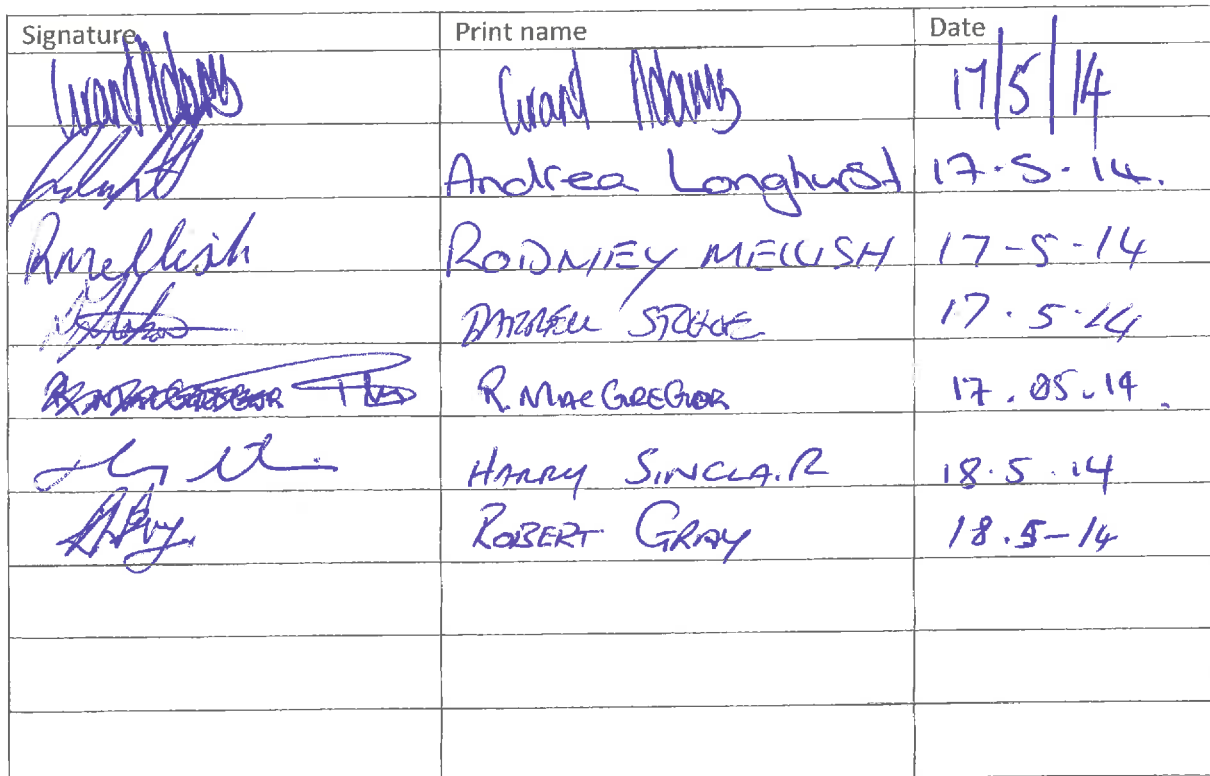 Signature Print name Date
Grant Adams Grant Adams 17/5/14
Andrea Longhurst 17.5.14.
RMellish RODNEY MELLISH 17-5-14
DARRELL 17.5.14
R MACGREGOR R. MACGREGOR 17.05.14.
HARRY SINCLAIR 18.5.14
ROBERT GRAY 18.5-14